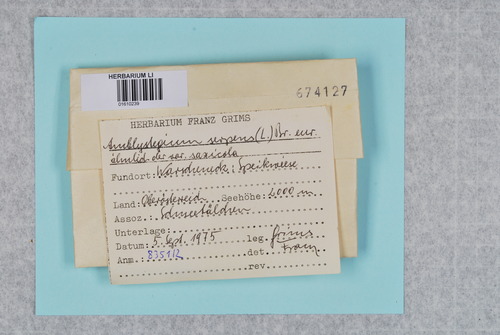 HERBARIUM LI
01610239
674127
HERBARIUM FRANZ GRIMS
Amblystegium serpens (L.) Br. eur.
ähnlich der var. saxicola
Fundort: Warscheneck: Speikwiese
Land: Oberösterreich Seehöhe: 2000 m
Assoz. Schneetälchen
Unterlage:
Datum: 5. Sept. 1975 leg. Grims
Anm. 8351/2 det. Franz
rev.